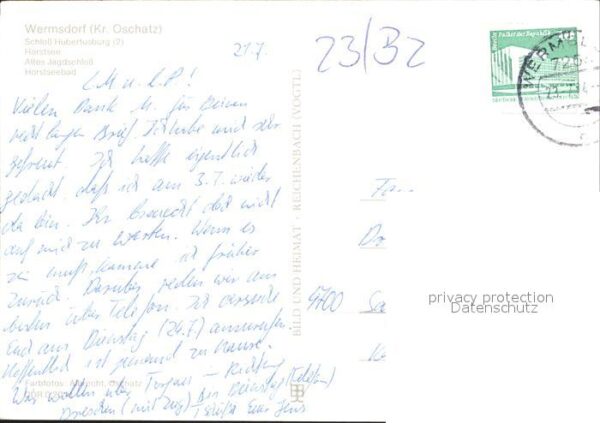 Wermsdorf (Kr. Oschatz)
Schloß Hubertusburg (2)
Horstsee
Altes Jagdschloß
Horstseebad
21.7.
23/B2
L. M. u. L. P!
Vielen Dank M. für Deinen
recht langen Brief. Ich habe mich sehr
gefreut. Ich hatte eigentlich
gedacht, daß ich am 3.7. wieder
da bin. Ihr braucht doch nicht
auf mich zu warten. Wenn es
sein muß, komme ich früher
zurück. Darüber reden wir am
besten über Telefon. Ich versuche
Euch am Dienstag (26.7) anzurufen.
Hoffentlich ist jemand zu Hause.
Wir wollen über Torgau - Richtung
Dresden (mit Zug) Bis Dienstag (Telefon)
Tschüß Euer Jens
Farbfotos: Albrecht, Oschatz
BILD UND HEIMAT · REICHENBACH (VOGTL)
Berlin Palast der Republik
WERMSD
726
Fam
9700
privacy protection
Datenschutz